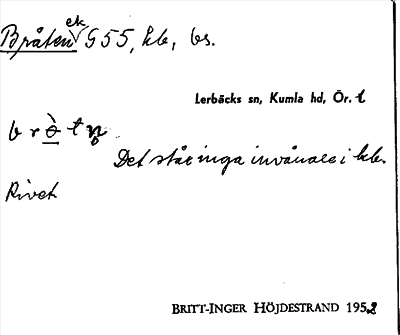 Bråten ek G55, kb, bs.
Lerbäcks sn, Kumla hd, Ör. l
b r ò̲ t n̥
Det står inga invånare i kb.
Rivet
BRITT-INGER HÖJDESTRAND 1952